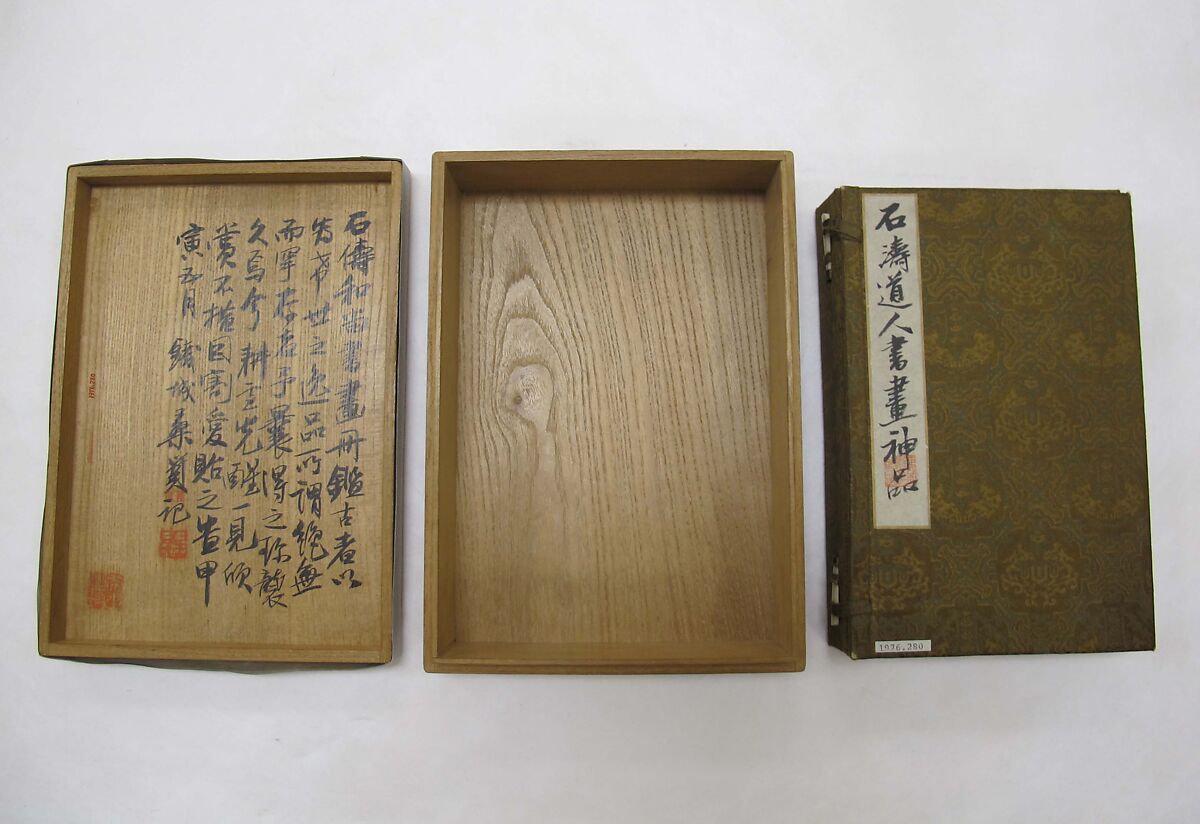 石濤和尚書畫冊鑑古者以
為希世之逸品所謂絕無
而罕存者予曩得之珍襲
久焉今耕云先醒一見欣
賞不措因割愛貽之旹甲
寅五月 鐵城桑箕記
1976.280
石濤道人書畫神品
1976.280